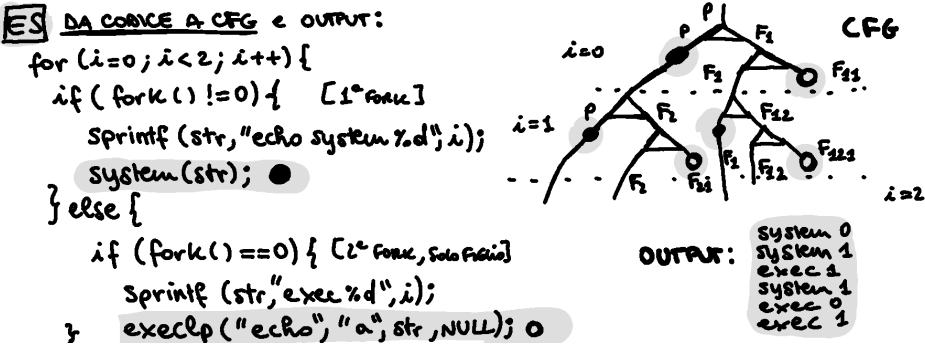 ES DA CODICE A CFG e OUTPUT:
for (i=0; i<2; i++) {
if (fork() !=0) { [1ª FORK]
sprintf (str, "echo system %d", i);
system(str); ●
} else {
if (fork() ==0) { [2ª FORK, SOLO FIGLIO]
sprintf (str, "exec %d", i);
} execlp ("echo", "a", str, NULL); o
CFG
P
P F1
i=0
F1 F11
i=1
P F2 F12
F2 F2i F1 F12 F121
i=2
OUTPUT:
system 0
system 1
exec 1
system 1
exec 0
exec 1